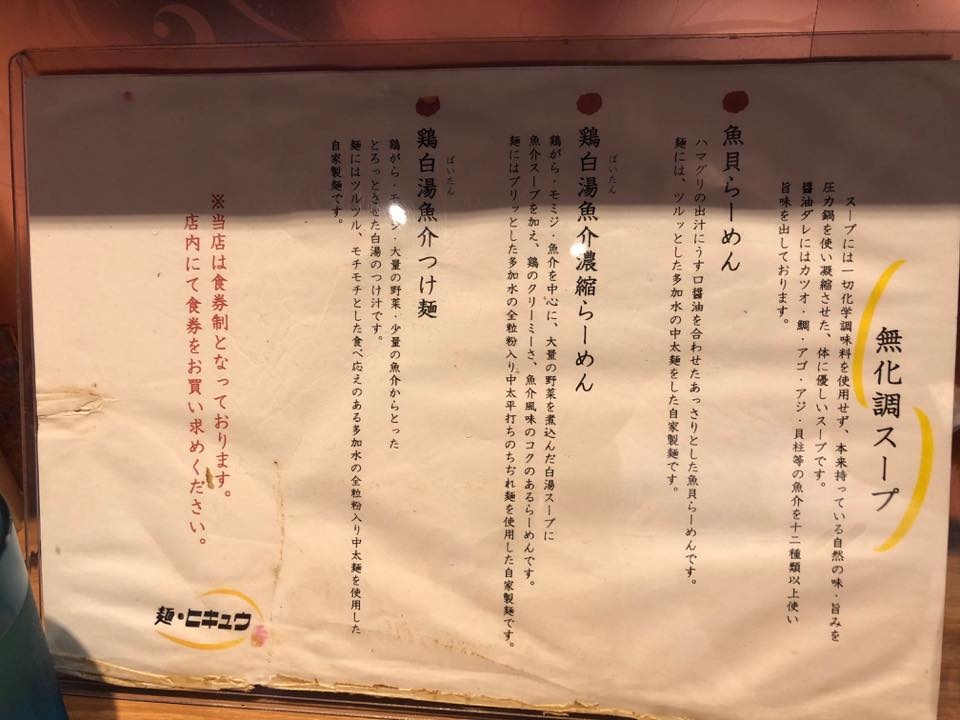 無化調スープ
スープには一切化学調味料を使用せず、本来持っている自然の味・旨みを
圧力鍋を使い凝縮させた、体に優しいスープです。
醤油ダレにはカツオ・鯛・アゴ・アジ・貝柱等の魚介を十二種類以上使い
旨味を出しております。
魚貝らーめん
ハマグリの出汁にうす口醤油を合わせたあっさりとした魚貝らーめんです。
麺には、ツルッとした多加水の中太麺をした自家製麺です。
鶏白湯魚介濃縮らーめん
ぱいたん
鶏がら・モミジ・魚介を中心に、大量の野菜を煮込んだ白湯スープに
魚介スープを加え、鶏のクリーミーさ、魚介風味のコクのあるらーめんです。
麺にはプリッとした多加水の全粒粉入り中太平打ちのちぢれ麺を使用した自家製麺です。
鶏白湯魚介つけ麺
ぱいたん
鶏がら・モミジ・大量の野菜・少量の魚介からとった
とろっとさせた白湯のつけ汁です。
麺にはツルツル、モチモチとした食べ応えのある多加水の全粒粉入り中太麺を使用した
自家製麺です。
※当店は食券制となっております。
店内にて食券をお買い求めください。
麺・ヒキュウ